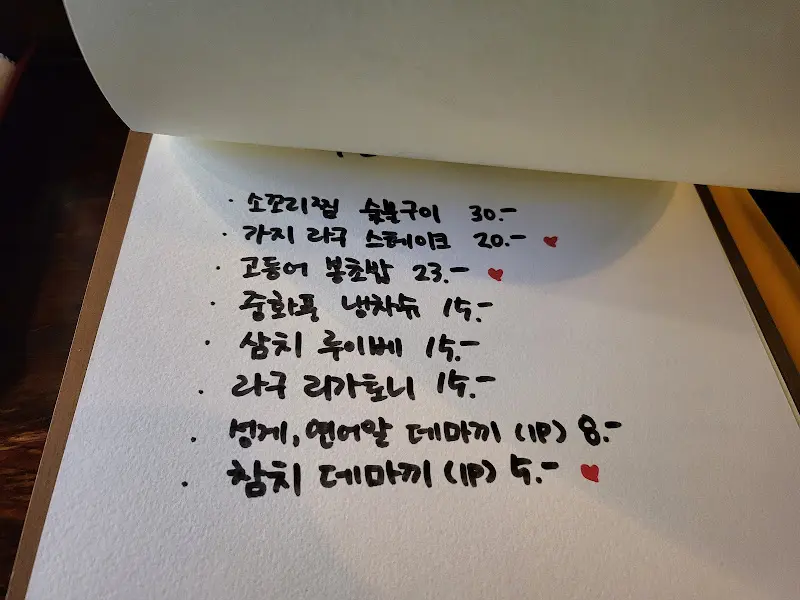 · 소꼬리찜 숯불구이 30.-
· 가지 라구 스테이크 20.- ♥
· 고등어 봉초밥 23.- ♥
· 중화풍 냉차슈 15.-
· 삼치 루이베 15.-
· 라구 리가토니 15.-
· 성게, 연어알 데마끼 (1P) 8.-
· 참치 데마끼 (1P) 5.- ♥